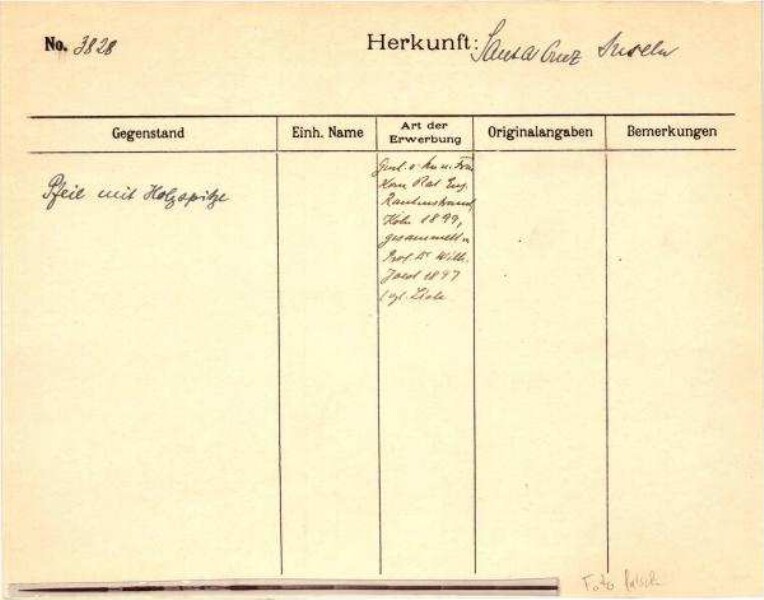 No. 3828
Herkunft: Santa Cruz Inseln
Gegenstand
Einh. Name
Art der
Erwerbung
Originalangaben
Bemerkungen
Pfeil mit Holzspitze
Gesch. v. Hrn u. Frau
Kom Rat Eug.
Rautenstrauch,
Köln 1899,
gesammelt v.
Prof. Dr Wilh.
Joest 1897
vgl. Liste
Foto falsch